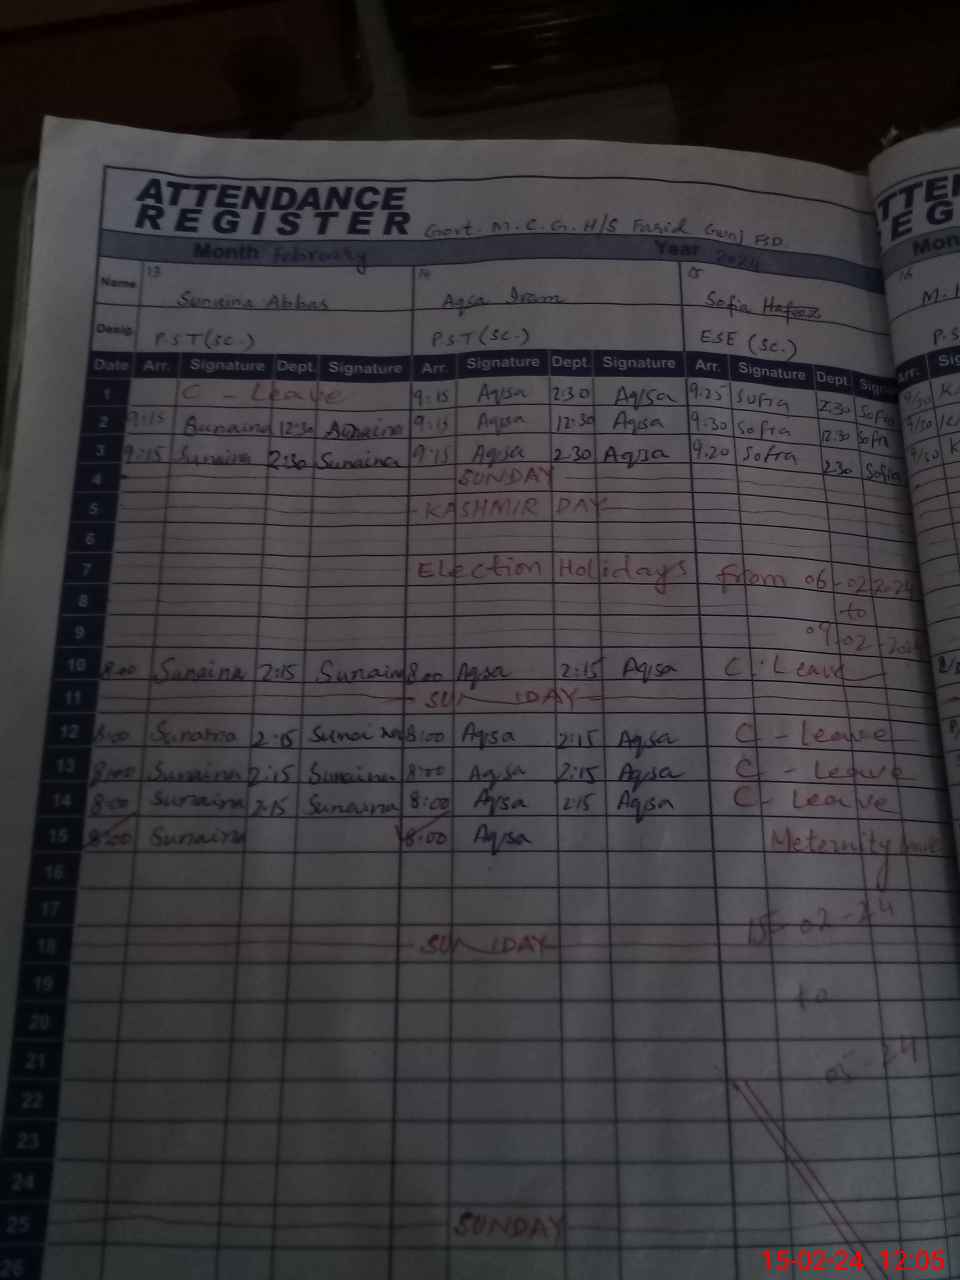 ATTENDANCE
REGISTER Govt. M.C.G. H/S Farid Gunj FSD.
Month February Year 2024
13 14 15 16
Name Sunaina Abbas Aqsa Iram Sofia Hafeez M.
Desig. P.S.T (SC.) P.S.T (SC.) ESE (SC.) P.S
Date Arr. Signature Dept. Signature Arr. Signature Dept. Signature Arr. Signature Dept. Arr.
1 C - Leave 9:15 Aqsa 2:30 Aqsa 9.25 Sofia 2:30 Sofia
2 9:15 Sunaina 12:30 Sunaina 9:15 Aqsa 12:30 Aqsa 9.30 Sofia 12:30 Sofia
3 9:15 Sunaina 2:30 Sunaina 9:15 Aqsa 2.30 Aqsa 9.20 Sofia 2:30 Sofia
4 SUNDAY
5 KASHMIR DAY
6
7 Election Holidays from 06-02-2024
8 to
9 09-02-2024
10 8:00 Sunaina 2:15 Sunaina 8:00 Aqsa 2:15 Aqsa C. Leave
11 SUNDAY
12 8:00 Sunaina 2:15 Sunaina 8:00 Aqsa 2:15 Aqsa C - Leave
13 8:00 Sunaina 2:15 Sunaina 8:00 Aqsa 2:15 Aqsa C - Leave
14 8:00 Sunaina 2:15 Sunaina 8:00 Aqsa 2:15 Aqsa C - Leave
15 8:00 Sunaina 8:00 Aqsa Meternity
16
17 15-02-24
18 SUNDAY
19 to
20
21 05-24
22
23
24
25 SUNDAY
26
15-02-24 12:05